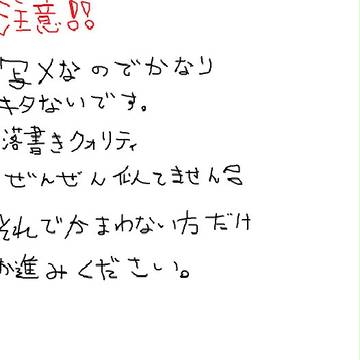 注意!!
写メなのでかなり
キタないです。
落書きクォリティ
ぜんぜん似てません!!
それでかまわない方だけ
お進みください。